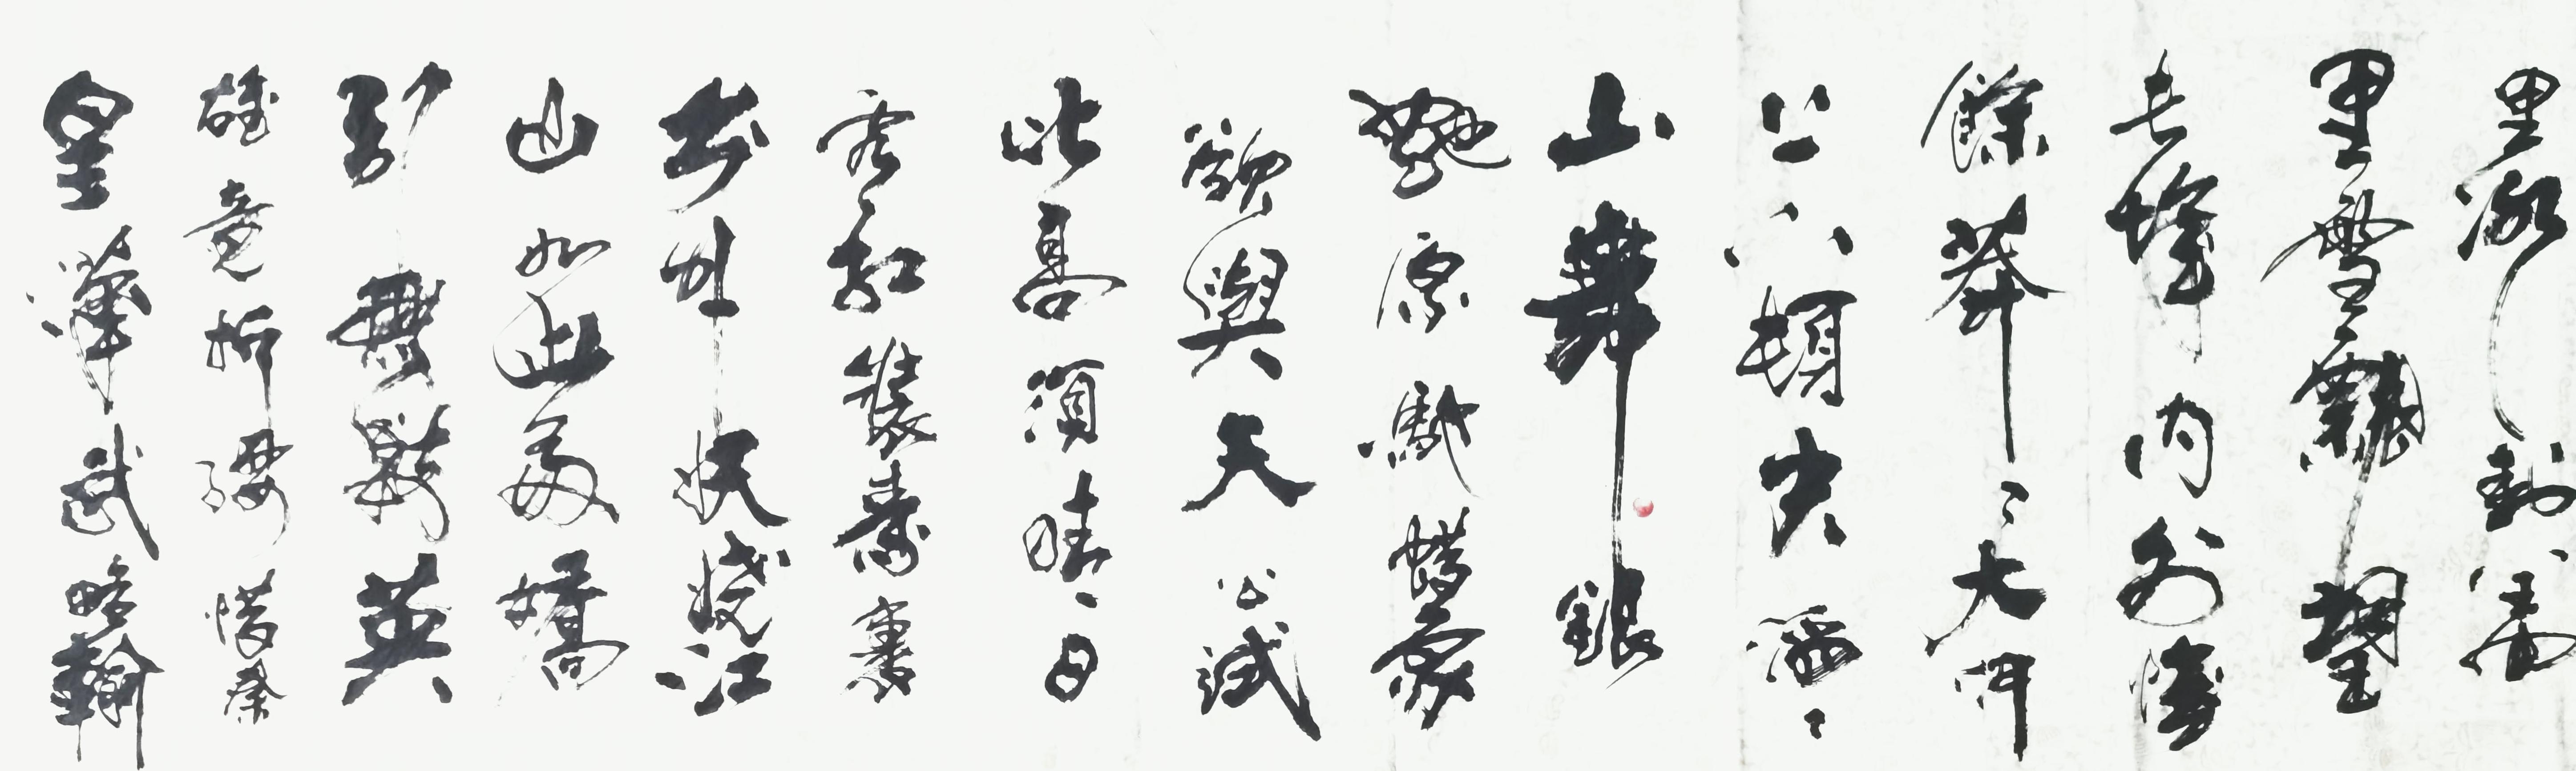 里冰封萬
里雪飄望
長城内外惟
餘莽〻大河
上下頓失滔〻
山舞銀
蛇原馳蠟象
欲與天公試
比高須晴日
看紅裝素裹
分外妖嬈江
山如此多嬌
引無數英
雄竞折腰惜秦
皇漢武略輸